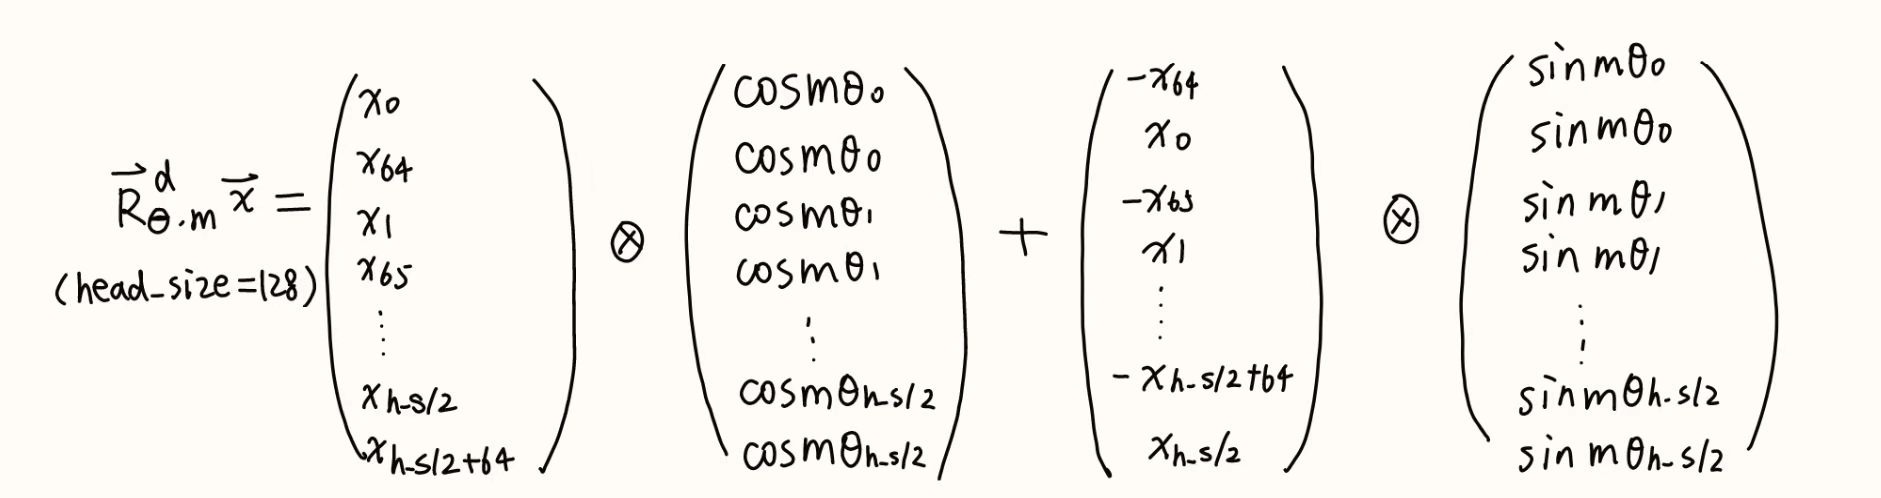 R⃗ᵈ_θ.m x⃗ = (x₀ x₆₄ x₁ x₆₅ ⋮ x_h-s/2 x_h-s/2+64) ⊗ (cosmθ₀ cosmθ₀ cosmθ₁ cosmθ₁ ⋮ cosmθ_h-s/2 cosmθ_h-s/2) + (-x₆₄ x₀ -x₆₅ x₁ ⋮ -x_h-s/2+64 x_h-s/2) ⊗ (sinmθ₀ sinmθ₀ sinmθ₁ sinmθ₁ ⋮ sinmθ_h-s/2 sinmθ_h-s/2)
(head_size=128)